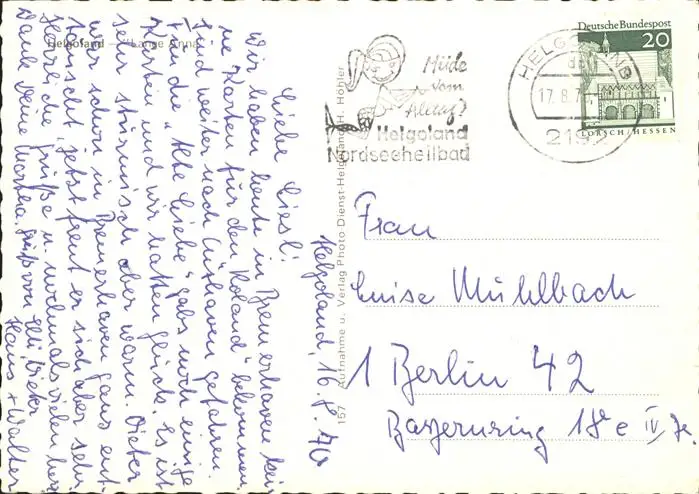 Helgoland "Lange Anna"
Helgoland, 16.8.70
Liebe Liesl!
Wir haben heute in Bremerhaven kei
ne Karten für den "Roland" bekommen,
sind weiter nach Cuxhaven gefahren.
Für die "Alte Liebe" gabs noch einige
Karten und wir hatten Glück. Es ist
sehr stürmisch aber warm. Dieter
war schon in Bremerhaven ganz ent-
täuscht, jetzt freut er sich aber sehr.
Herzliche Grüße u. nochmals vielen herz
Dank Deine Martha. Gruß von Elli, Dieter
Hans + Walter
157 Aufnahme u. Verlag Photo Dienst-Helgoland, H. Höhler
Müde
vom
Alltag?
Helgoland
Nordseeheilbad
HELGOLAND
17.8.7
2192
Deutsche Bundespost
20
LORSCH/HESSEN
Frau
Luise Mühlbach
1 Berlin 42
Bayernring 18e IV Tr.